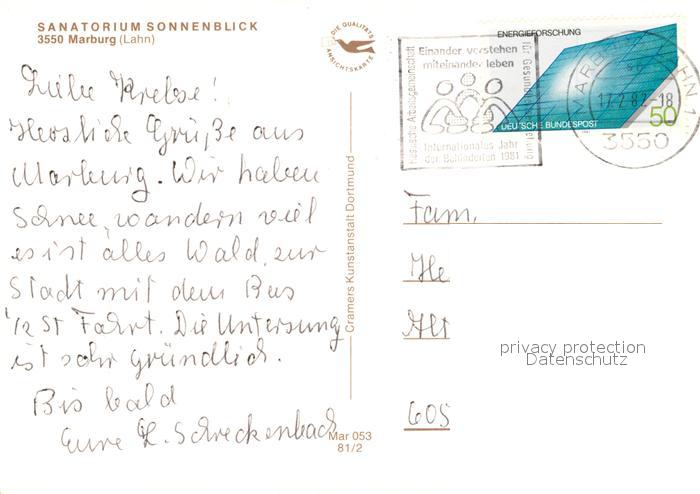 SANATORIUM SONNENBLICK
3550 Marburg (Lahn)
Liebe Krebse!
Herzliche Grüße aus
Marburg. Wir haben
Schnee, wandern viel
es ist alles Wald, zur
Stadt mit dem Bus
1/2 St Fahrt. Die Untersung
ist sehr gründlich.
Bis bald
Eure L. Schreckenbach
DIE QUALITÄTS
ANSICHTSKARTE
Cramers Kunstanstalt Dortmund
Mar 053
81/2
Einander verstehen
miteinander leben
Hessische Arbeitsgemeinschaft
für Gesundheitserziehung
Internationales Jahr
der Behinderten 1981
ENERGIEFORSCHUNG
DEUTSCHE BUNDESPOST
50
MARBURG, LAHN 1
17.2.82-18
3550
Fam.
He
Alt
605
privacy protection
Datenschutz